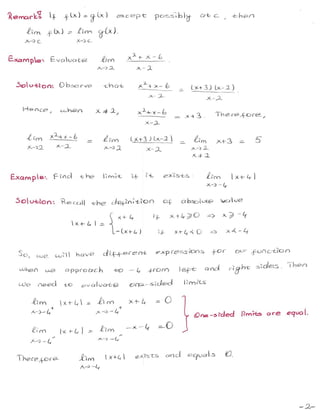 Remark: If f(x) = g(x) except possibly at c, then
lim f(x) = lim g(x).
x→c x→c
Example: Evaluate lim x²+x-6 / x-2 .
x→2
Solution: Observe that x²+x-6 / x-2 = (x+3)(x-2) / x-2 .
Hence, when x≠2, x²+x-6 / x-2 = x+3. Therefore,
lim x²+x-6 / x-2 = lim (x+3)(x-2) / x-2 = lim x+3 = 5
x→2 x→2 x→2
x≠2
Example: Find the limit if it exists: lim |x+4|
x→-4
Solution: Recall the definition of absolute value
|x+4| = { x+4 if x+4≥0 ⇒ x≥-4
-(x+4) if x+4<0 ⇒ x<-4
So, we will have different expressions for our function
when we approach to -4 from left and right sides. Then
we need to evaluate one-sided limits
lim |x+4| = lim x+4 = 0
x→-4⁺ x→-4⁺
One-sided limits are equal.
lim |x+4| = lim -x-4 = 0
x→-4⁻ x→-4⁻
Therefore lim |x+4| exists and equals 0.
x→-4
-2-